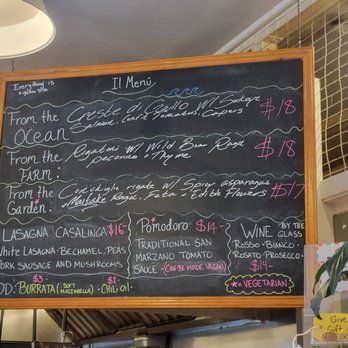 Everything is
a gluten
Il Menú
From the
OCEAN
Creste di Gallo w/ Sockeye
Salmon, Garlic, Tomatoes, Capers
$18
From the
FARM:
Rigatoni w/ Wild Boar Ragu
pecorino + Thyme
$18
From the
Garden:
Conchiglie rigate w/ Spicy asparagus
+ Feta + Edible Flowers
$17
LASAGNA CASALINGA $16
White LASAGNA - BECHAMEL, PEAS
PORK SAUSAGE AND MUSHROOMS
*Pomodoro $14-
TRADITIONAL SAN
MARZANO TOMATO
SAUCE - (CAN BE MADE VEGAN)
WINE BY THE
GLASS
ROSSO • BIANCO •
ROSATO • PROSECCO
$14-
*= VEGETARIAN
$3 $1
DD: BURRATA (SOFT MOZZARELLA) • CHILI OIL •
Give
Gift